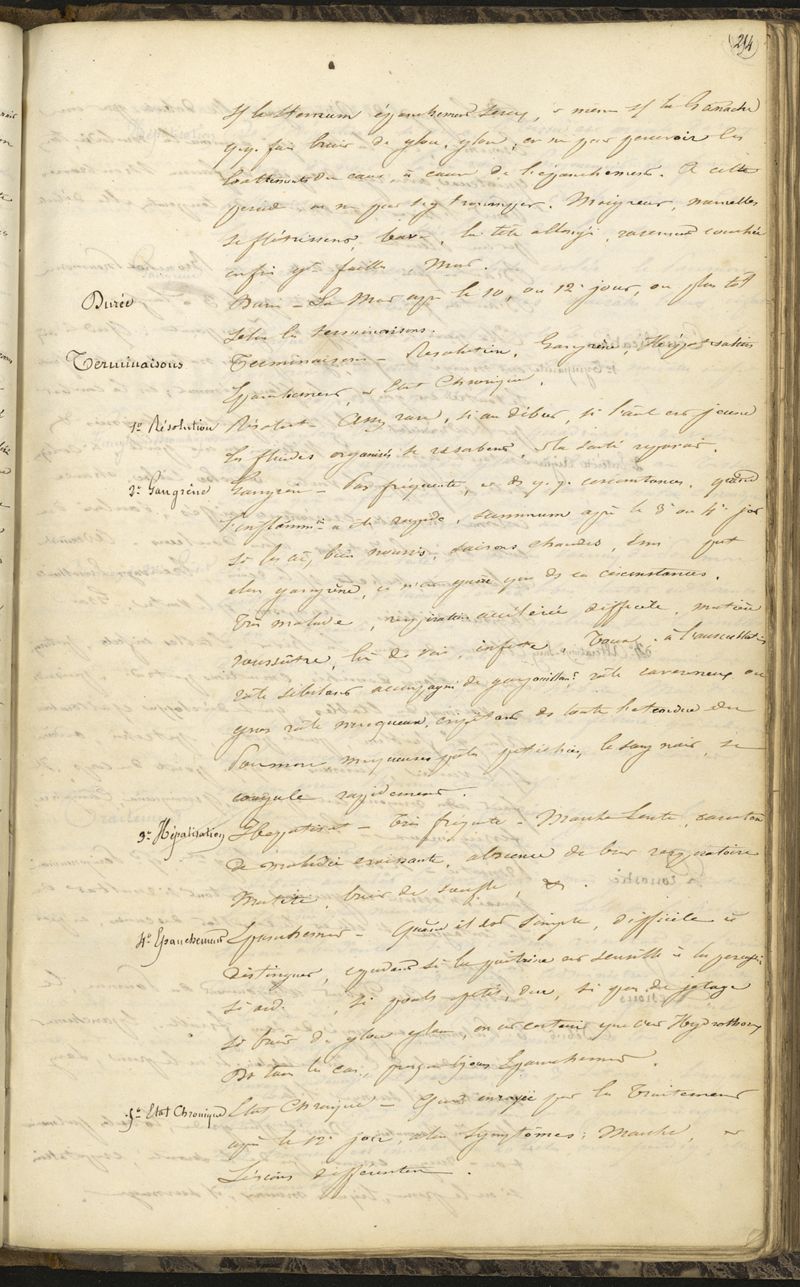 214
s/ le sternum épanchement séreux, & même s/ la Ganache
q.q. fois bruit de glou, glou, on ne peut percevoir les
battements du cœur à cause de l'épanchement. A cette
période, on ne peut s'y tromper. Maigreur, mamelles
se flétrissent, la tête allongée, rarement couchée
enfin gde faiblesse, Mort.
Durée
Durée – La Mort après le 10, ou 12e jour, ou plus tôt
selon les terminaisons.
Terminaisons
Terminaisons – Résolution, Gangrène, Hépatisation
Epanchement, et Etat Chronique.
1o Résolution
Résolut – Assez rare, si au début, si l'anl est jeune
les fluides organisés se résorbent, & la santé reparait.
2o Gangrène
Gangrène – Pas fréquente, et ds q.q. circonstances, quand
l'inflammon a été rapide, survenue après le 3e ou 4e jour
si les anx bien nourris, saisons chaudes,
alors gangrène, ce n'est guère que ds ces circonstances.
Très malade, respiration accélérée difficile, matière
roussâtre, lie de vin, infecte, Toux, à l'auscultation
râle sibilant accompagné de gargouillement râle caverneux ou
gros râle muqueux, crépitant ds toute l'étendue du
Poumon muqueuses pâles pétéchies, le sang noir, se
coagule rapidement.
3o Hépatisation
Hépatisat – Très fréqente – Marche Lente,
de maladie croissante, absence de bruit respiratoire
Matité, bruit de souffle, &.
4o Epanchement
Epanchement – Quand il est simple, difficile à
distinguer, cependant si la poitrine est sensible à la percuson
si oed , si pouls petit, dur, si peu de jetage
si bruit de glou glou, on est certain que c'est Hydrothorax
Ds tous les cas, presque tjours Epanchement.
5o Etat Chronique
Etat Chronique – Quand enrayée par le Traitement
après le 12e jour, alors Symptômes, Marche, &
Lésions différentes.